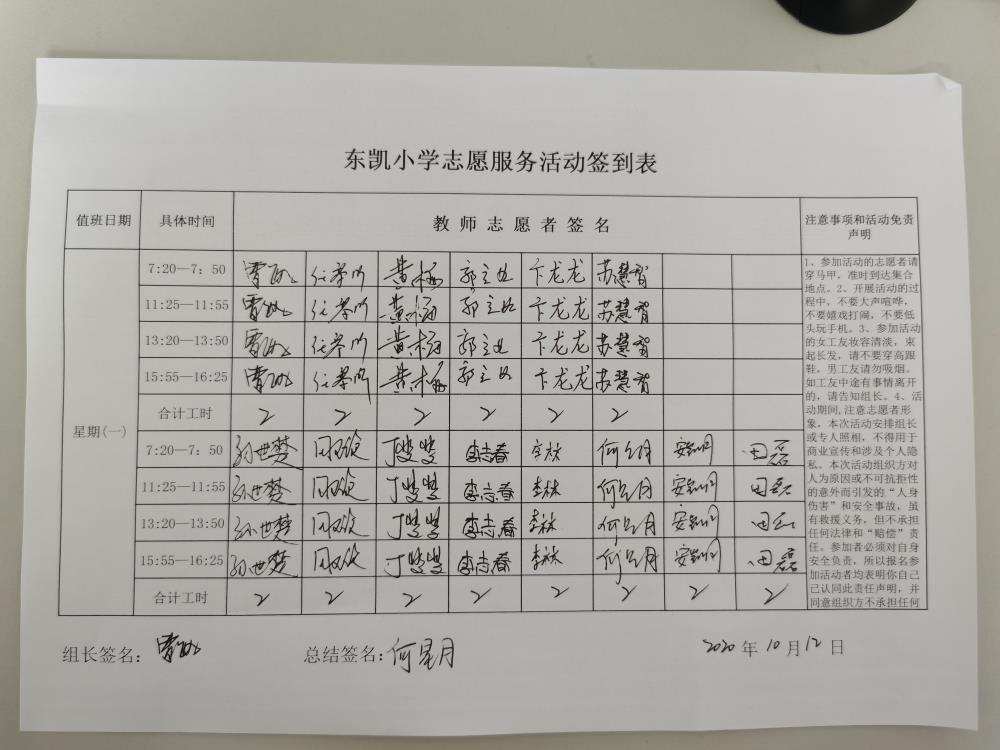 东凯小学志愿服务活动签到表
值班日期 具体时间 教 师 志 愿 者 签 名 注意事项和活动免责
声明
星期(一)
7:20—7：50 黄杨 卞龙龙 苏慧智
11:25—11:55 黄杨 卞龙龙 苏慧智
13:20—13:50 黄杨 卞龙龙 苏慧智
15:55—16:25 黄杨 卞龙龙 苏慧智
合计工时 2 2 2 2 2 2
7:20—7：50 孙世梦 丁雙雙 李志春 李林 何星月 田磊
11:25—11:55 孙世梦 丁雙雙 李志春 李林 何星月 田磊
13:20—13:50 孙世梦 丁雙雙 李志春 李林 何星月 田磊
15:55—16:25 孙世梦 丁雙雙 李志春 李林 何星月 田磊
合计工时 2 2 2 2 2 2 2 2
1、参加活动的志愿者请
穿马甲，准时到达集合
地点。2、开展活动的过
程中，不要大声喧哗，
不要嬉戏打闹，不要低
头玩手机。3、参加活动
的女工友妆容清淡，束
起长发，请不要穿高跟
鞋。男工友请勿吸烟。
如工友中途有事情离开
的，请告知组长。4、活
动期间,注意志愿者形
象。本次活动安排组长
或专人照相，不得用于
商业宣传和涉及个人隐
私。本次活动组织方对
人为原因或不可抗拒性
的意外而引发的“人身
伤害”和安全事故，虽
有救援义务，但不承担
任何法律和“赔偿”责
任。参加者必须对自身
安全负责，所以报名参
加活动者均表明你自己
已认同此责任声明，并
同意组织方不承担任何
组长签名： 总结签名：何星月 2020 年 10 月 12 日